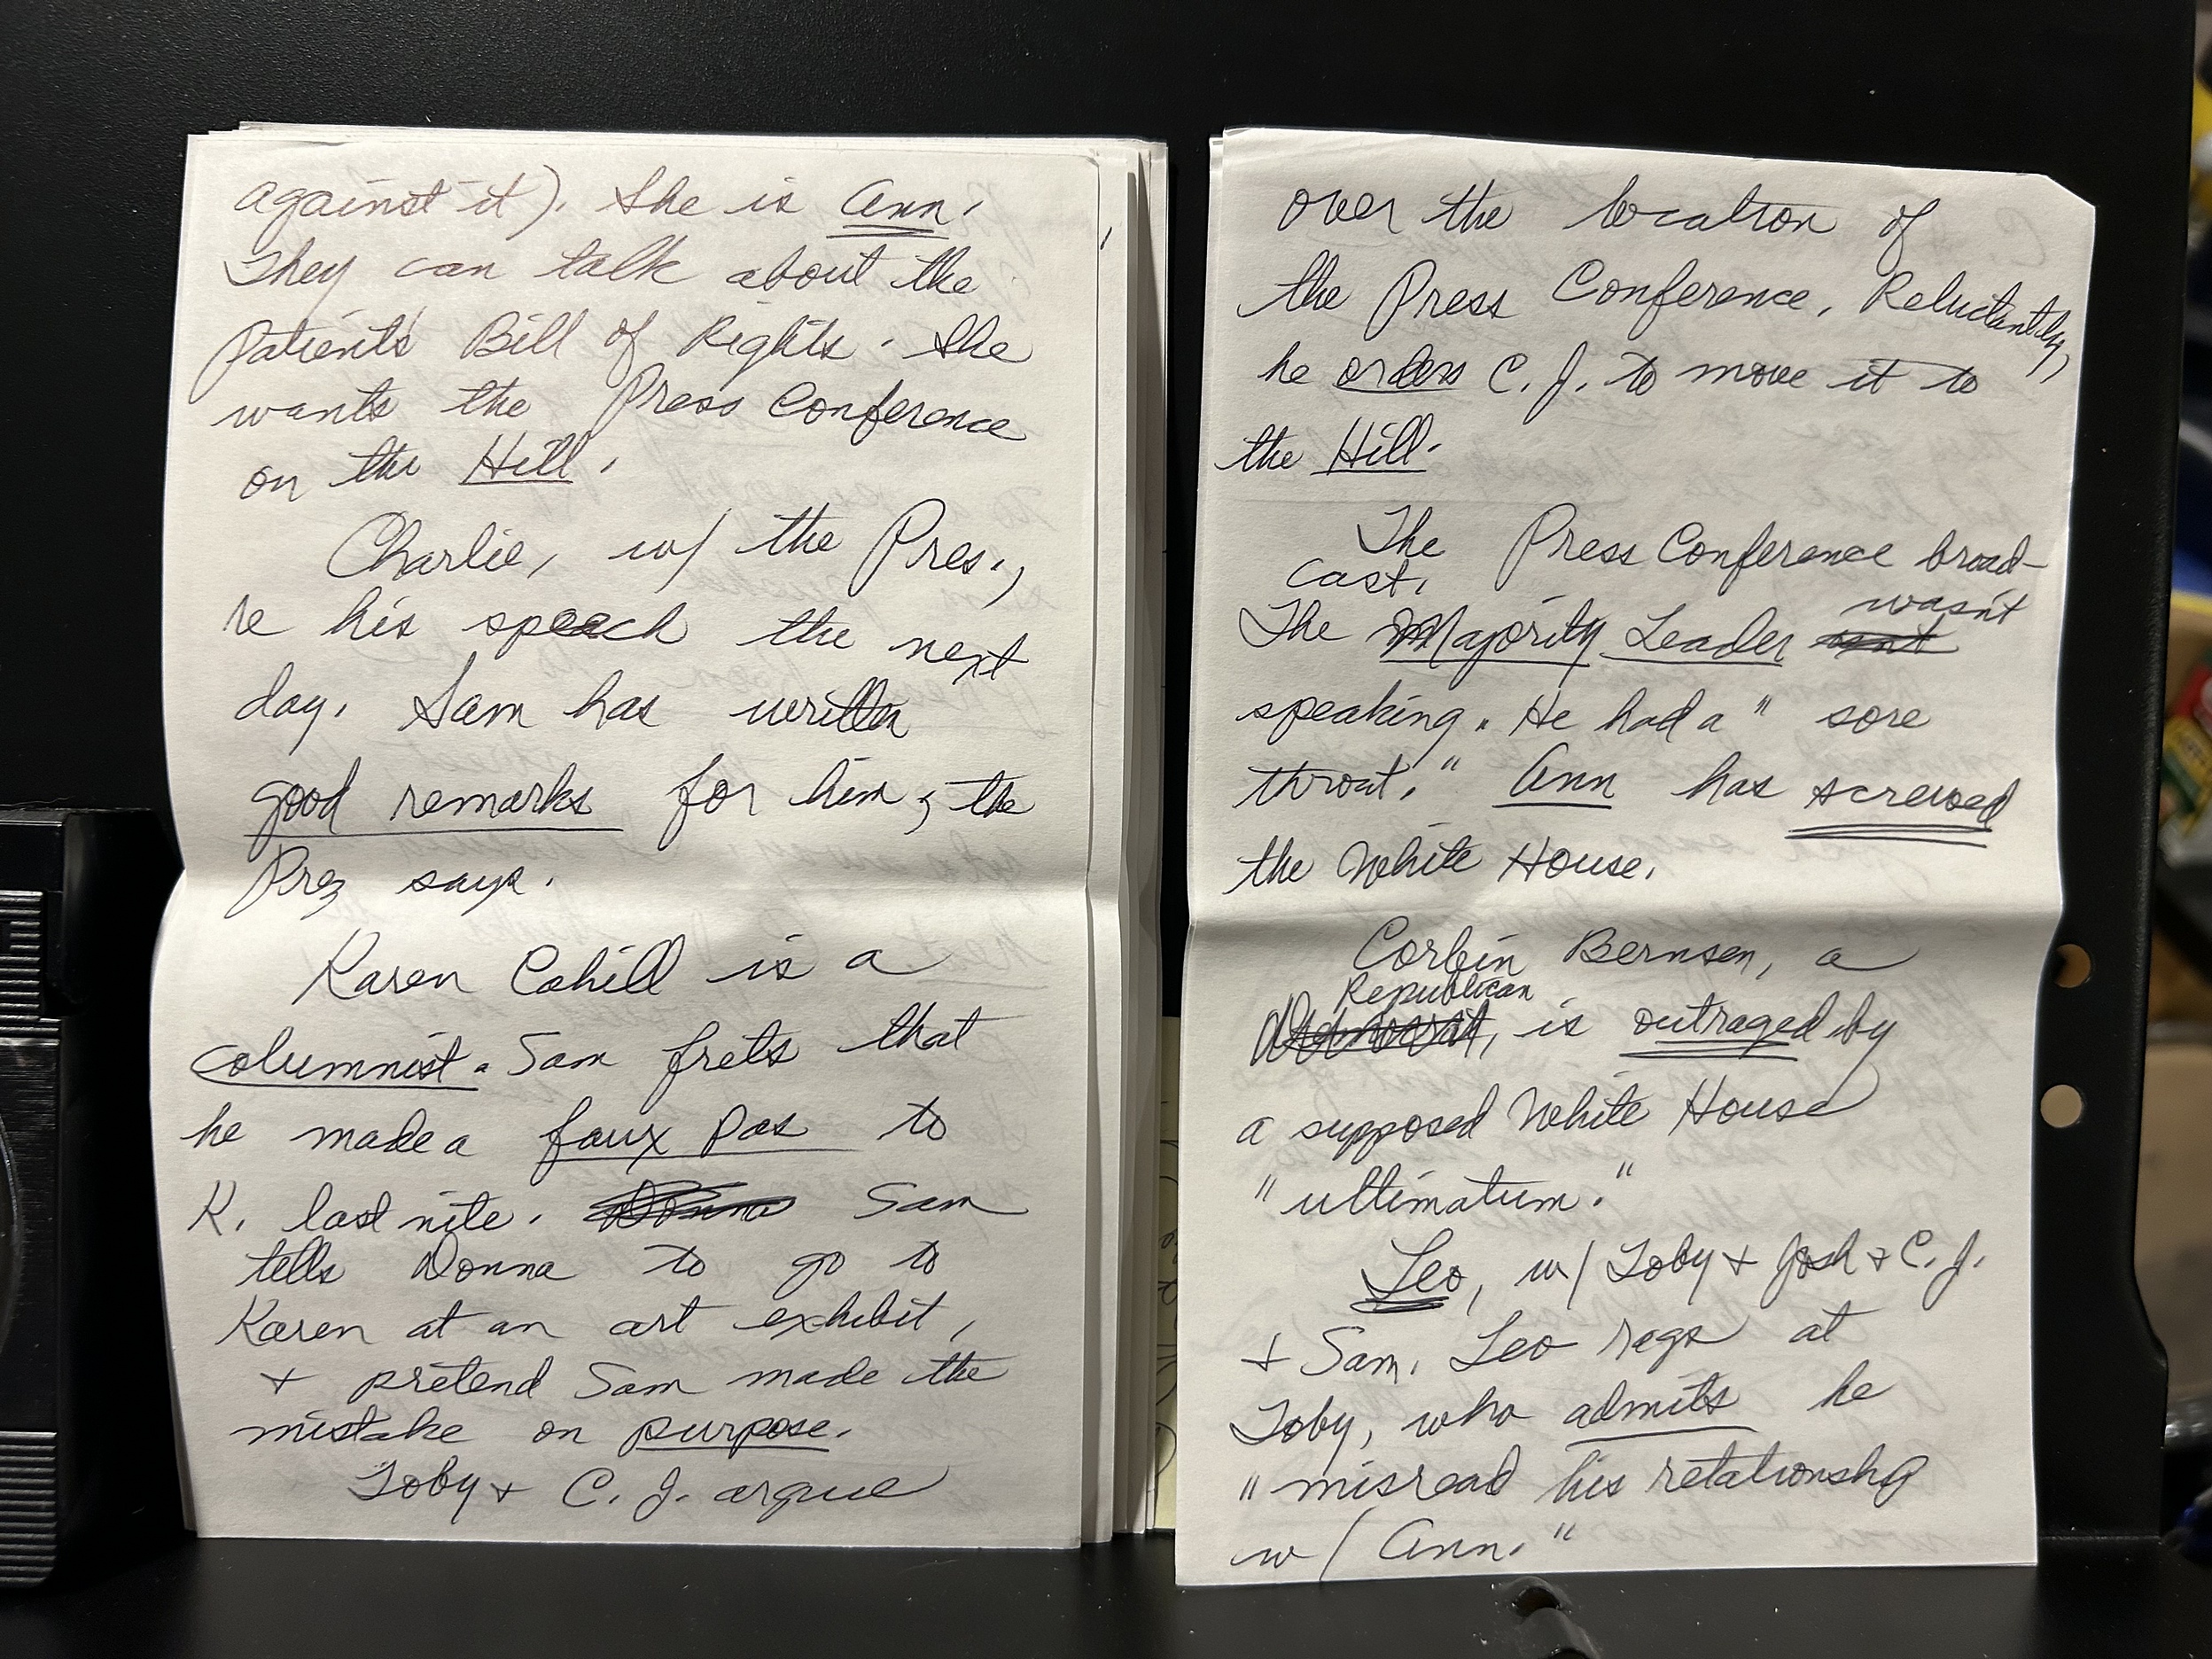 against it). She is Ann.
They can talk about the
Patients' Bill of Rights. She
wants the Press Conference
on the Hill.
Charlie, w/ the Pres.,
re his speech the next
day. Sam has written
good remarks for him, the
Prez says.
Karen Cahill is a
columnist. Sam frets that
he made a faux pas to
K. last nite. Donna Sam
tells Donna to go to
Karen at an art exhibit,
+ pretend Sam made the
mistake on purpose.
Toby + C. J. argue
over the location of
the Press Conference. Reluctantly,
he orders C. J. to move it to
the Hill.
The Press Conference broad-
cast.
wasn't
The Majority Leader
speaking. He had a "sore
throat." Ann has screwed
the White House.
Corbin Bernsen, a
Republican
Democrat, is outraged by
a supposed White House
"ultimatum."
Leo, w/ Toby + Josh + C. J.
+ Sam. Leo rags at
Toby, who admits he
"misread his relationship
w/ Ann."